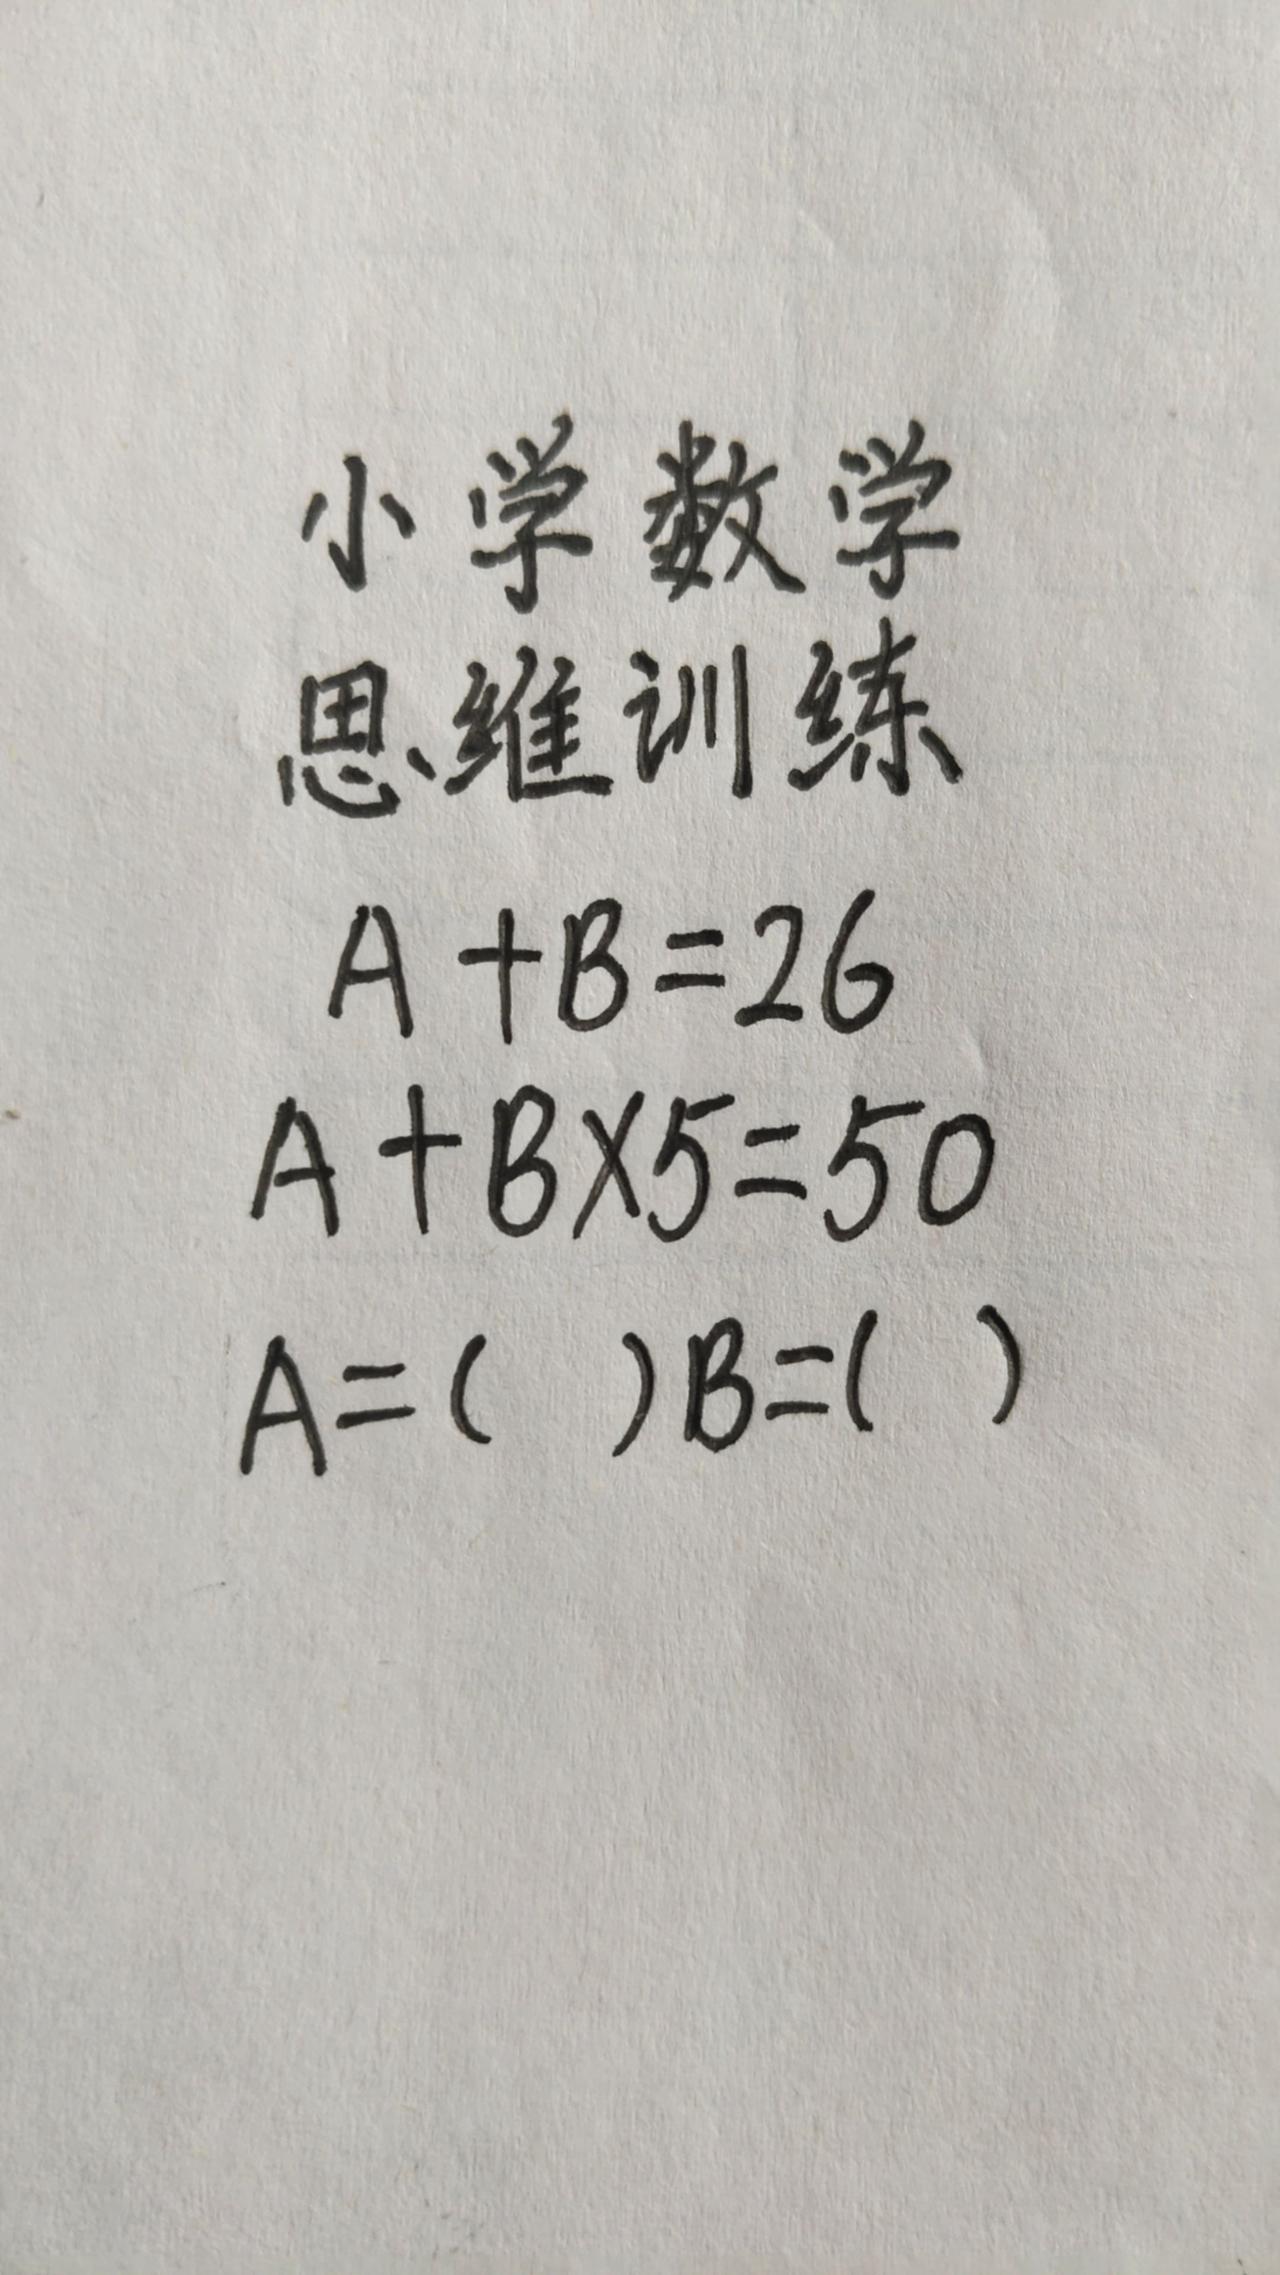 小学数学
思维训练
A+B=26
A+B×5=50
A=( )B=( )